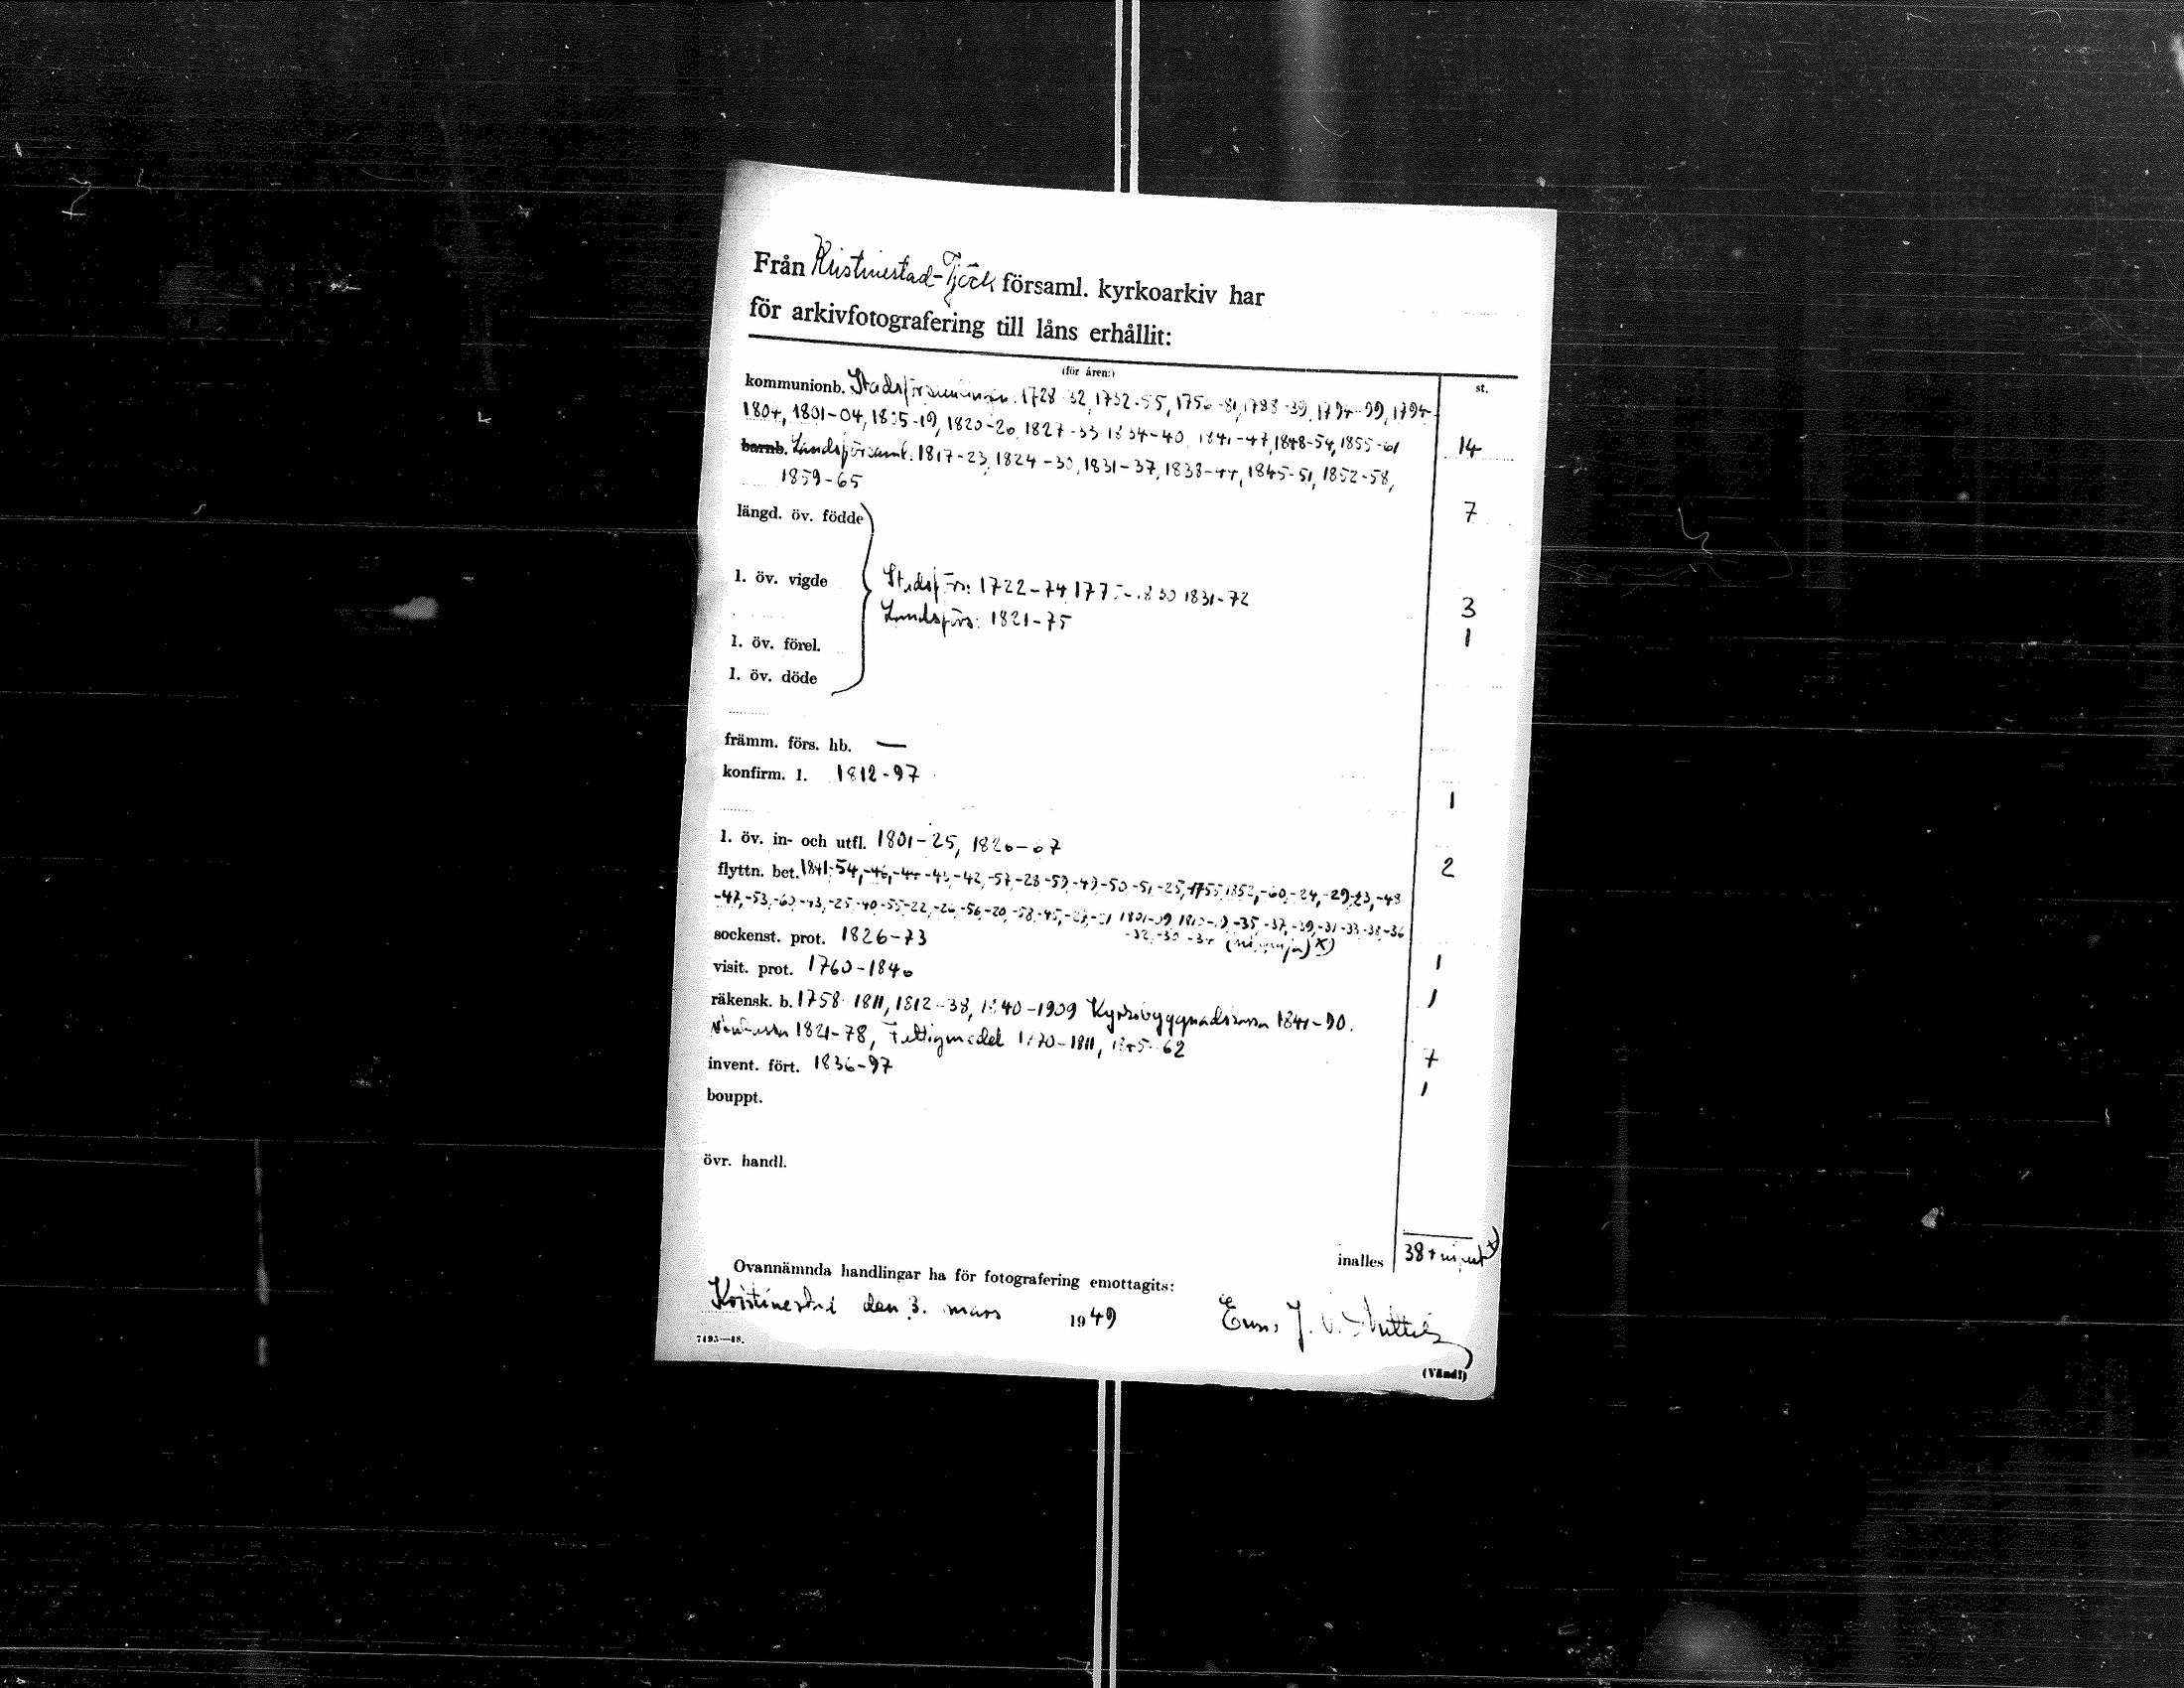 Från Kristinestad-Tjöck församl. kyrkoarkiv har
för arkivfotografering till låns erhållit:
(för åren:)
st.
kommunionb. Stadsförsamlingen. 1728-32, 1732-55, 1756-81, 1788-39, 1794-99, 1794-
1804, 1801-04, 1805-19, 1820-26, 1827-33 1834-40, 1841-47, 1848-54, 1855-61
14
barnb. Landsförsaml. 1817-23, 1824-30, 1831-37, 1838-44, 1845-51, 1852-58,
1859-65
7
längd. öv. födde
l. öv. vigde
Stadsförs: 1722-74 1775-1830 1831-72
3
Landsförs: 1821-75
1
l. öv. förel.
l. öv. döde
främm. förs. hb. —
konfirm. l. 1812-97
1
l. öv. in- och utfl. 1801-25, 1826-67
2
flyttn. bet. 1841-54, -46, -44 -43, -42, -57, -28 -59, -49 -50 -51 -25, 1755, 1852, -60, -24, -29, -23, -48
-47, -53, -60 -43, -25 -40 -55 -22, -26, -56 -20, -58, -45, 1801-09 -35, -37, -39, -31 -33 -38, -36
-32, -30 -34 x)
sockenst. prot. 1826-73
1
visit. prot. 1760-1840
1
räkensk. b. 1758-1811, 1812-38, 1840-1909 Kyrkobyggnadskassa 1841-90.
1821-78, Fattigmedel 1770-1811, 1845-62
7
invent. fört. 1836-97
1
bouppt.
övr. handl.
inalles 38 + x)
Ovannämnda handlingar ha för fotografering emottagits:
Kristinestad den 3. mars 1949
J. V.
7493—48.
(Vänd!)